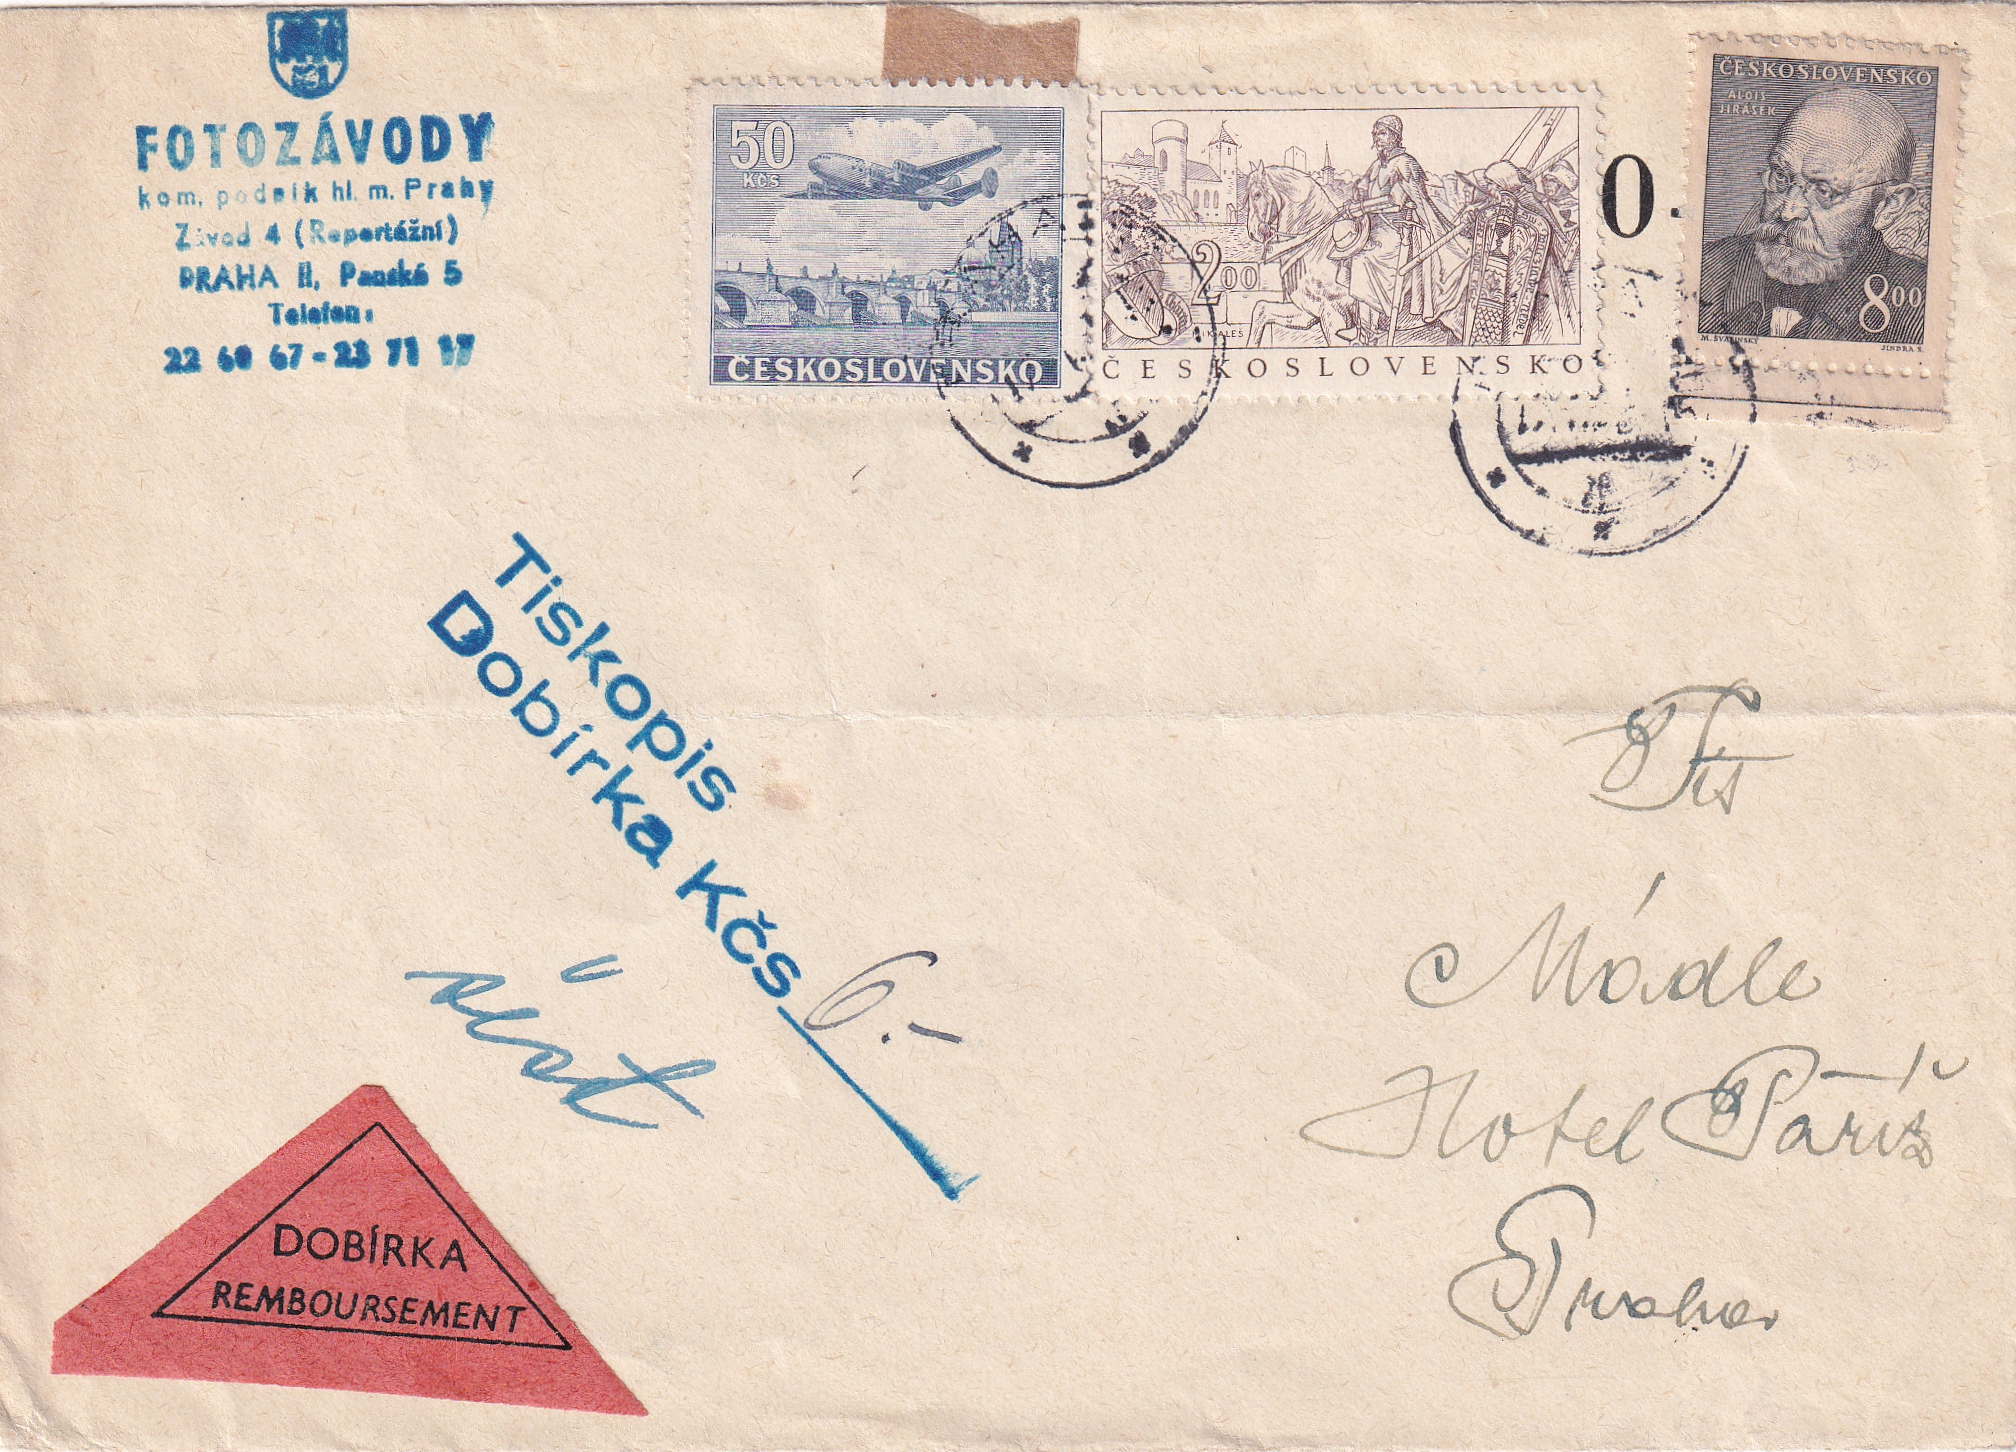 FOTOZÁVODY
kom. podnik hl. m. Prahy
Závod 4 (Reportážní)
PRAHA II, Panská 5
Telefon:
22 60 67 - 23 71 17
50
Kčs
ČESKOSLOVENSKO
200
MIK. ALEŠ
ČESKOSLOVENSKO
0.
ČESKOSLOVENSKO
ALOIS
JIRÁSEK
800
M. ŠVABINSKÝ
JINDRA S.
Tiskopis
Dobírka Kčs 6.-
Mádle
Hotel Paříž
Praha
DOBÍRKA
REMBOURSEMENT